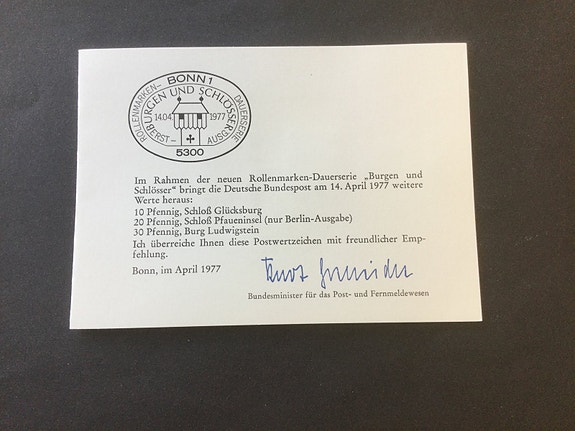 BONN 1
ROLLENMARKEN-
DAUERSERIE
BURGEN UND SCHLÖSSER
14.04.
1977
ERST-
AUSG.
5300
Im Rahmen der neuen Rollenmarken-Dauerserie „Burgen und
Schlösser“ bringt die Deutsche Bundespost am 14. April 1977 weitere
Werte heraus:
10 Pfennig, Schloß Glücksburg
20 Pfennig, Schloß Pfaueninsel (nur Berlin-Ausgabe)
30 Pfennig, Burg Ludwigstein
Ich überreiche Ihnen diese Postwertzeichen mit freundlicher Emp-
fehlung.
Bonn, im April 1977
Bundesminister für das Post- und Fernmeldewesen